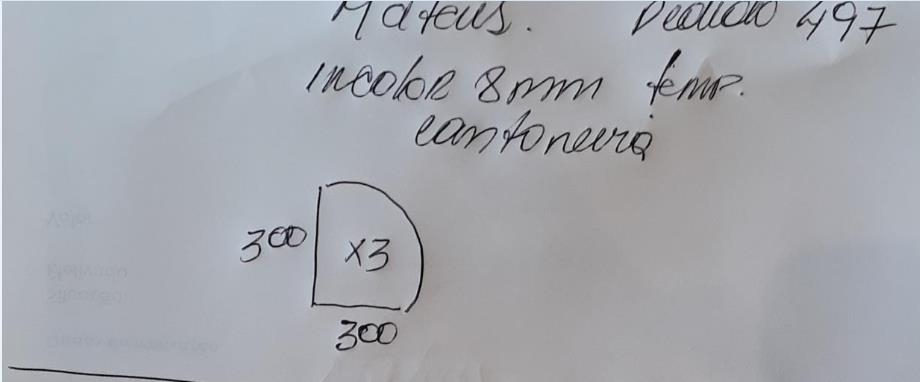 Mateus. Pedido 497
incolor 8mm temp.
cantoneira
300
x3
300